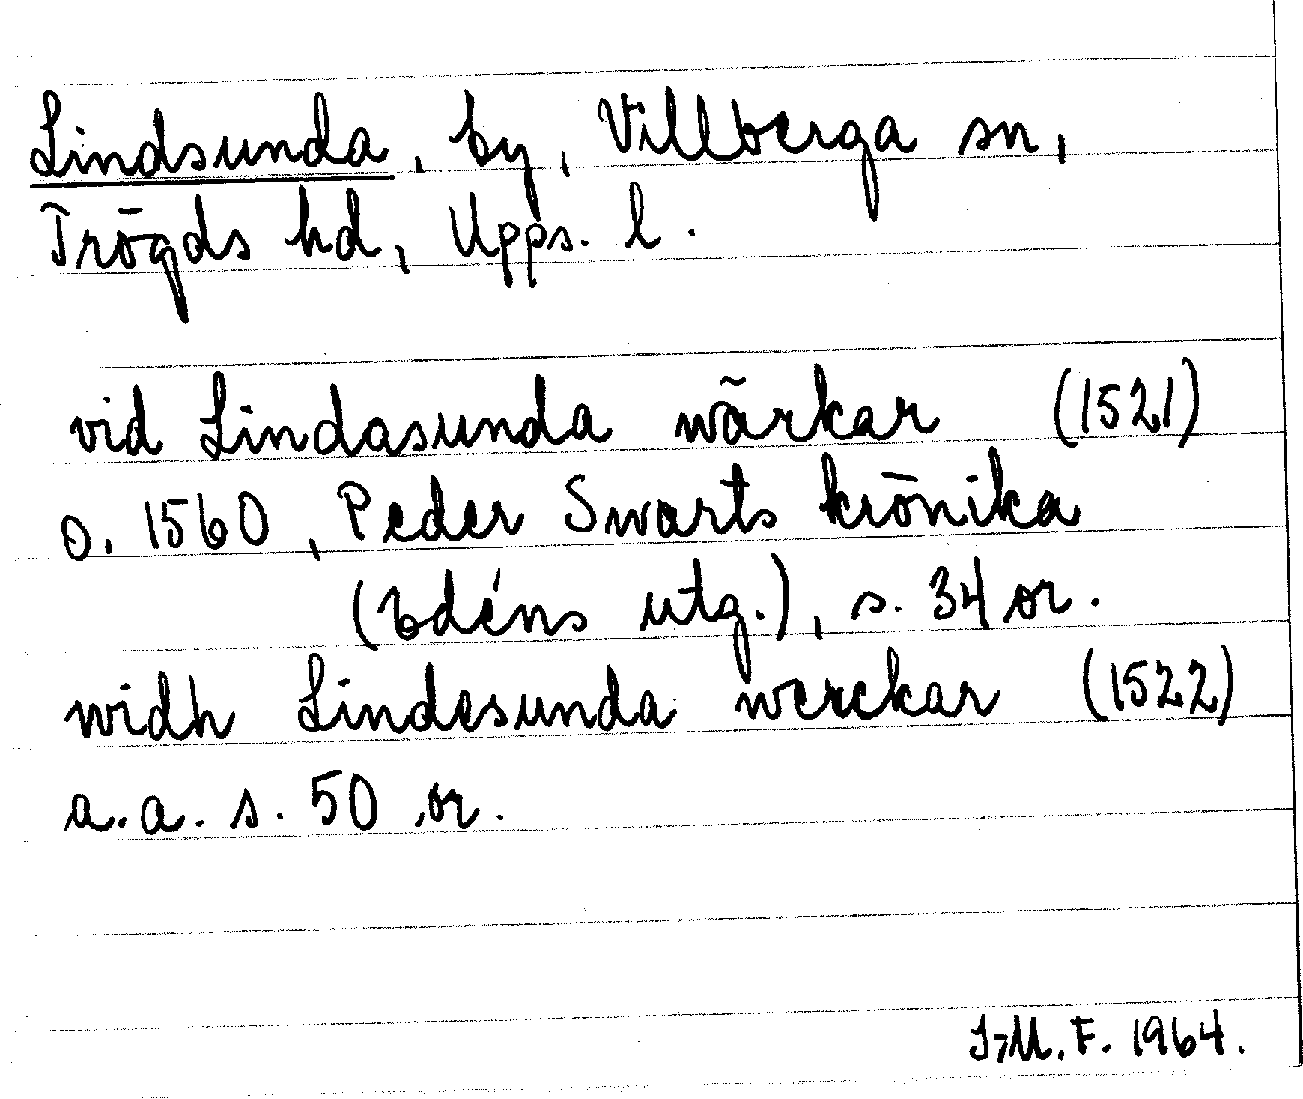 Lindsunda, by, Villberga sn,
Trögds hd, Upps. l.
vid Lindasunda wärkar (1521)
o. 1560, Peder Swarts krönika
(Edéns utg.), s. 34 or.
widh Lindesunda werckar (1522)
a.a. s. 50 or.
I-M. F. 1964.